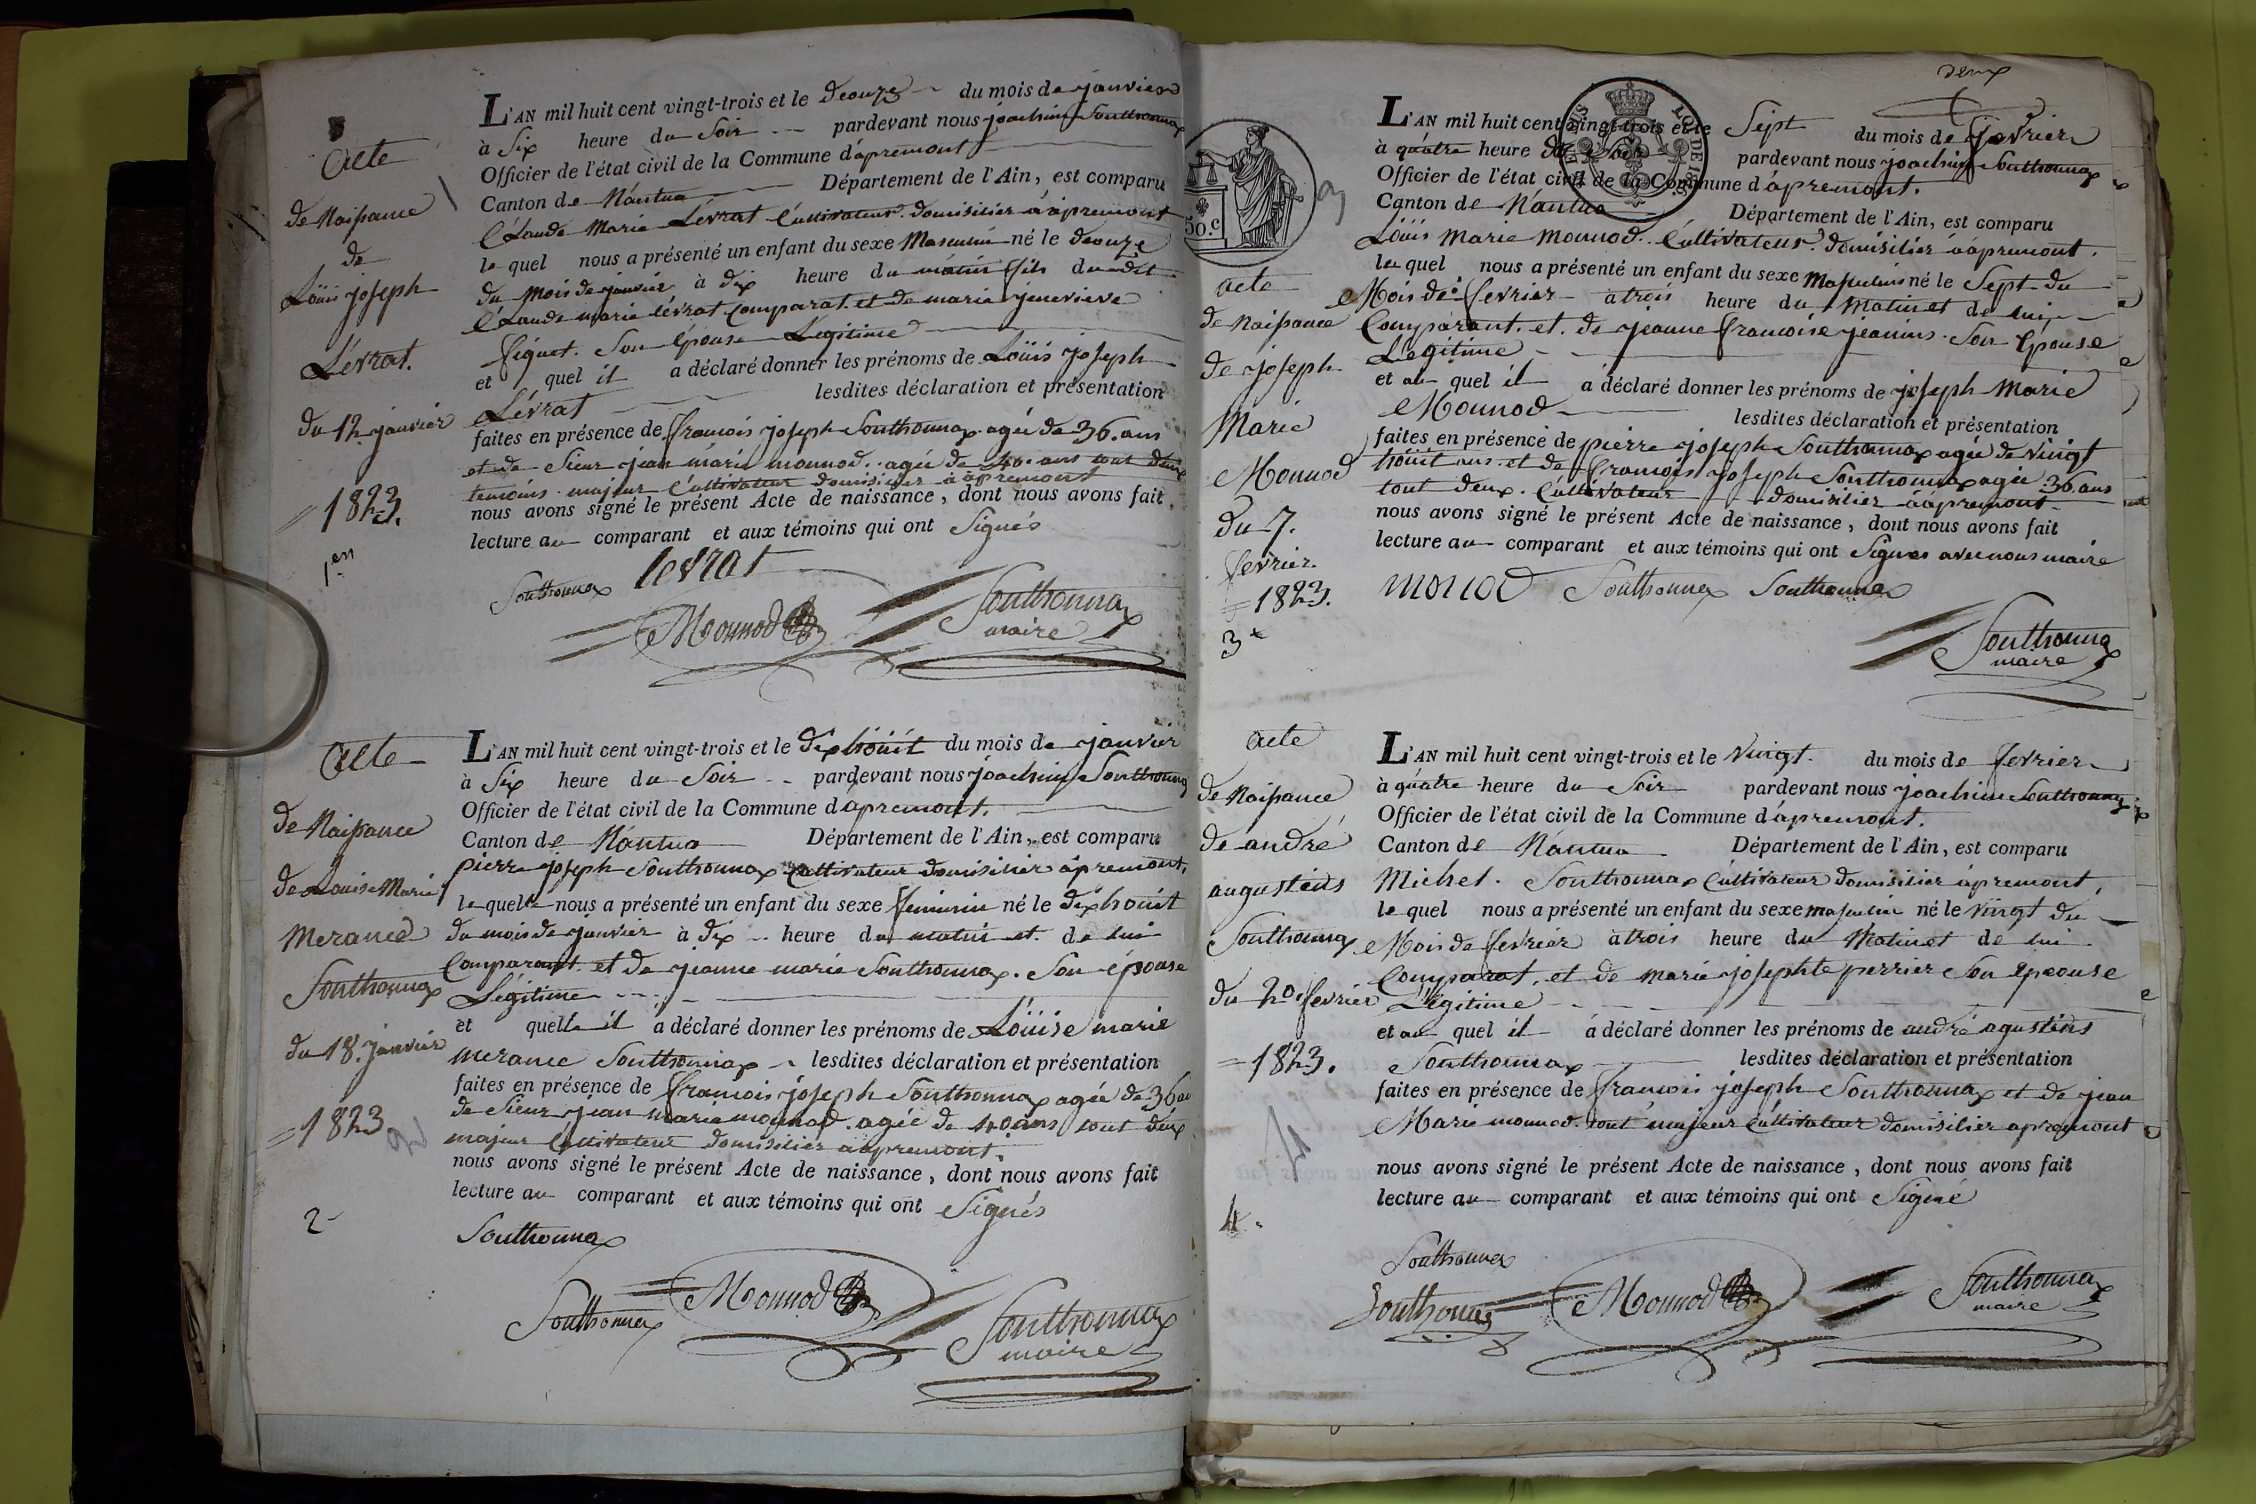 Acte
de Naissance
de
Loüis joseph
Lévrat.
du 12 janvier
1823.
1.er
L'AN mil huit cent vingt-trois et le deouze du mois de janvier
à Six heure du Soir pardevant nous joachim Southonnax
Officier de l'état civil de la Commune d'apremont
Canton de Nántua Département de l'Ain, est comparu
Claude Marie Lévrat Cultivateur domisilier à apremont
le quel nous a présenté un enfant du sexe Masculin né le deouze
du mois de janvier à dix heure du matin fils du dit
Claude marie lévrat Comparat. et de marie jenevieve
figuet. Son Épouse Légitime
et quel il a déclaré donner les prénoms de Loüis joseph
Lévrat lesdites déclaration et présentation
faites en présence de francois joseph Southonnax agée de 36. ans
et de Sieur jean marie monnod. agée de 40. ans tout deux
temoins majeur Cultivateur domisilier à apremont
nous avons signé le présent Acte de naissance, dont nous avons fait
lecture au comparant et aux témoins qui ont Signés
Southonnax levrat
Monnod Southonnax
maire
Acte
de Naissance
de Louise Marie
Merance
Southonnax
du 18. janvier
1823
2
L'AN mil huit cent vingt-trois et le dix hoüit du mois de janvier
à Six heure du Soir pardevant nous joachim Southonnax
Officier de l'état civil de la Commune d'apremont.
Canton de Nántua Département de l'Ain, est comparu
pierre joseph Southonnax Cultivateur domisilier apremont,
le quelle nous a présenté un enfant du sexe feminin né le dix hoüit
du mois de janvier à dix heure du matin et de lui
Comparant et de jeanne marie Southonnax. Son épouse
Légitime
et quelle il a déclaré donner les prénoms de Loüise marie
merance Southonnax lesdites déclaration et présentation
faites en présence de francois joseph Southonnax agée de 36 an
de Sieur jean marie monnod. agée de 40 ans tout deux
majeur Cultivateur domisilier a apremont.
nous avons signé le présent Acte de naissance, dont nous avons fait
lecture au comparant et aux témoins qui ont Signés
Southonnax
Southonnax Monnod Southonnax
maire
deux
50.c
acte
de Naissance
de joseph
Marie
Monnod
du 7.
fevrier.
1823.
3
L'AN mil huit cent vingt-trois et le Sept du mois de fevrier
à quátre heure du Soir pardevant nous joachim Southonnax
Officier de l'état civil de la Commune d'apremont.
Canton de Nántua Département de l'Ain, est comparu
Loüis Marie Monnod. Cultivateur. domisilier à apremont.
le quel nous a présenté un enfant du sexe masculin né le Sept du
Mois de fevrier à trois heure du Matin et de lui
Comparant. et. de jeanne francoise jeanins. Son Épouse
Légitime
et au quel il a déclaré donner les prénoms de joseph Marie
Monnod lesdites déclaration et présentation
faites en présence de pierre joseph Southonnax agée de vingt
hoüit ans. et de francois joseph Southonnax agée 36. ans
tout deux. Cultivateur domisilier à apremont.
nous avons signé le présent Acte de naissance, dont nous avons fait
lecture au comparant et aux témoins qui ont Signes avec nous maire
monod Southonnax Southonnax
Southonnax
maire
Acte
de Naissance
de andré
augustins
Southonnax
du 20. fevrier
1823.
4.
L'AN mil huit cent vingt-trois et le Vingt. du mois de fevrier
à quátre heure du Soir pardevant nous joachim Southonnax
Officier de l'état civil de la Commune d'apremont.
Canton de Nántua Département de l'Ain, est comparu
Michel. Southonnax Cultivateur domisilier apremont,
le quel nous a présenté un enfant du sexe masculin né le vingt du
Mois de fevrier à trois heure du Matin et de lui
Comparat, et de marie josephte perrier Son epeouse
Légitime
et au quel il á déclaré donner les prénoms de andré agustins
Southonnax lesdites déclaration et présentation
faites en présence de francois joseph Southonnax et de jean
Marie monnod. tout majeur Cultivateur domisilier apremont
nous avons signé le présent Acte de naissance, dont nous avons fait
lecture au comparant et aux témoins qui ont Signé
Southonnax
Southonnax Monnod Southonnax
maire